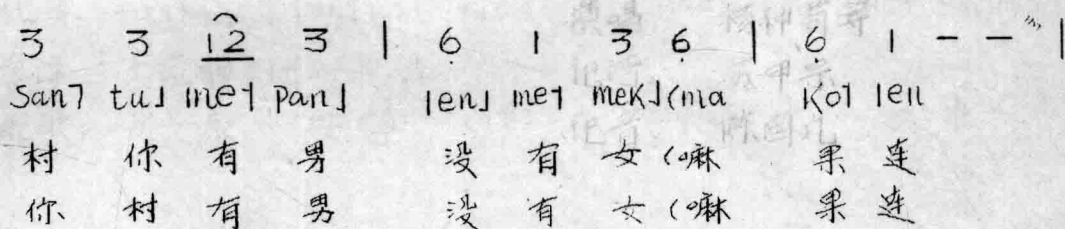 3 3 1̲2̲ 3 | 6̣ 1 3 6̣ | 6̣ 1 - - |
San˥ tu˩ me˧ pan˩ len˩ me˧ mek˩(ma ko˥ len
村 你 有 男 没 有 女(嘛 果 连
你 村 有 男 没 有 女(嘛 果 连